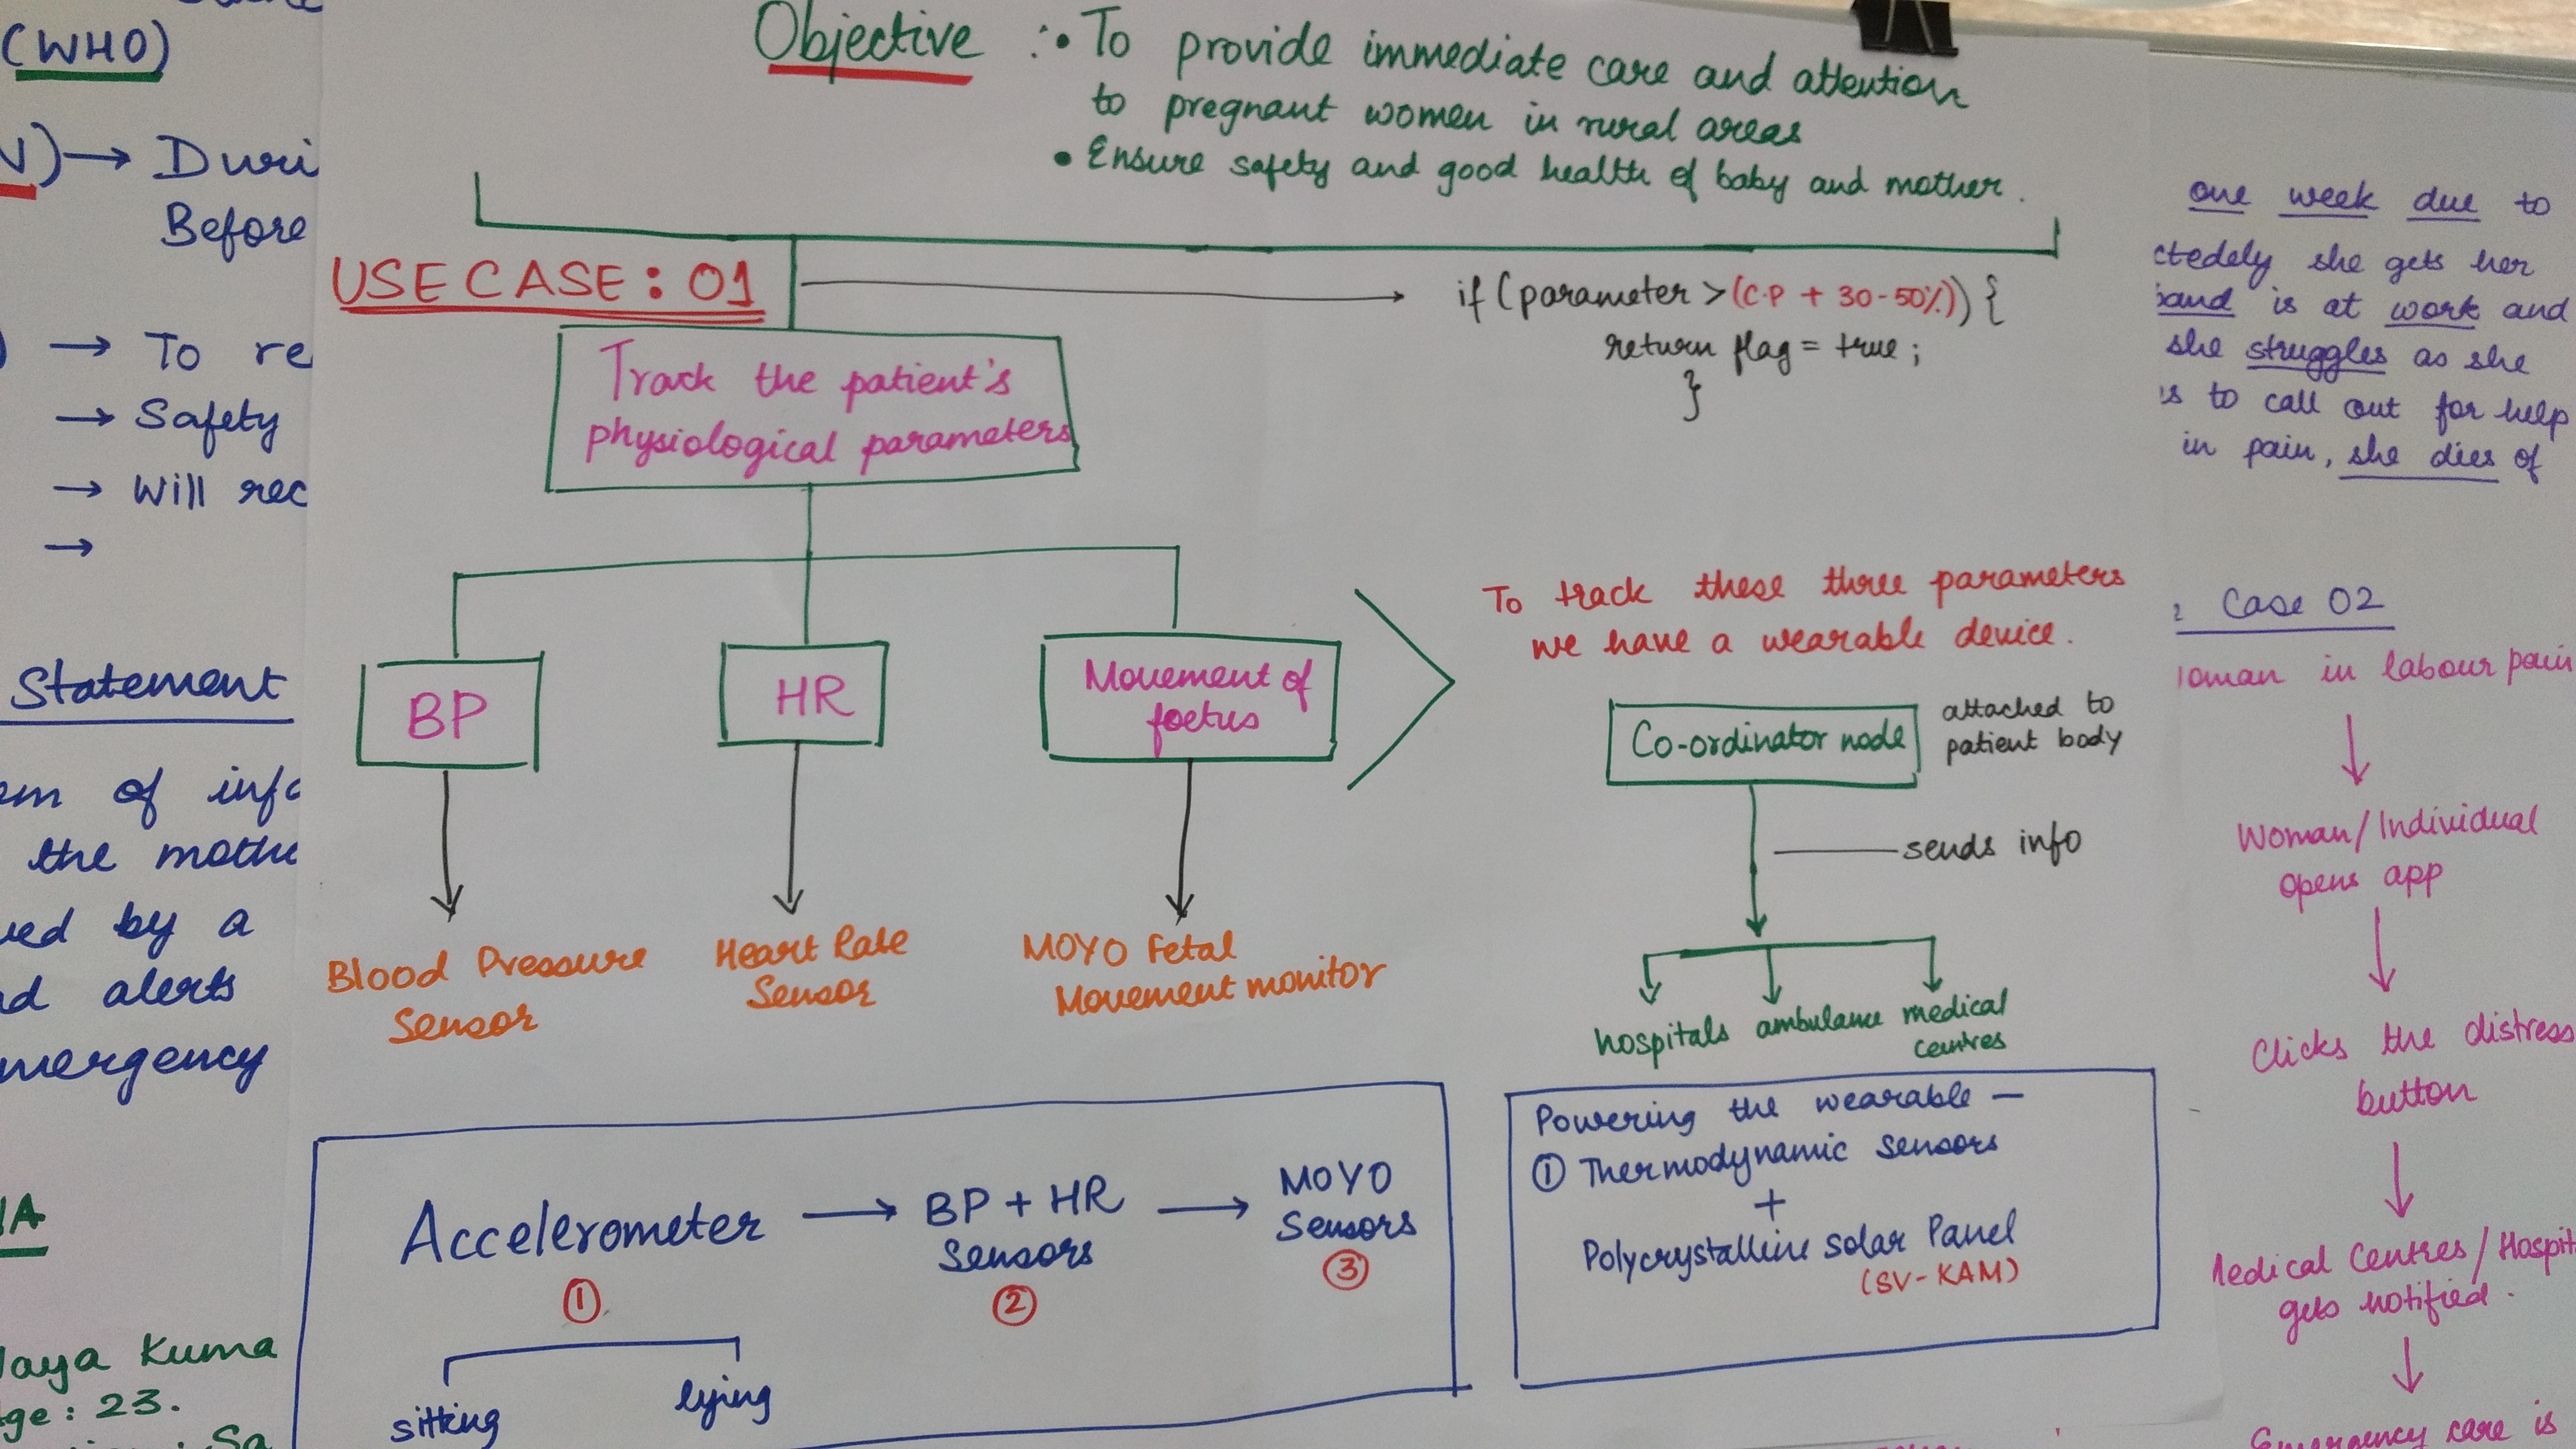 (WHO)
→ Duri
Before
→ To re
→ Safety
→ Will rec
→
Statement
of info
the mothe
by a
alerts
mergency
Kuma
ge: 23.
Objective :• To provide immediate care and attention
to pregnant women in rural areas
• Ensure safety and good health of baby and mother.
USE CASE: 01
if (parameter > (C.P + 30-50%)) {
return flag = true;
}
Track the patient's
physiological parameters
BP
HR
Movement of
foetus
Blood Pressure
Sensor
Heart Rate
Sensor
MOYO Fetal
Movement monitor
To track these three parameters
we have a wearable device.
Co-ordinator node
attached to
patient body
sends info
hospitals ambulance medical
centres
Accelerometer → BP + HR → MOYO
Sensors Sensors
① ② ③
sitting lying
Powering the wearable —
① Thermodynamic sensors
+
Polycrystalline solar Panel
(SV-KAM)
one week due to
ctedely she gets her
band is at work and
she struggles as she
is to call out for help
in pain, she dies of
Case 02
oman in labour pain
Woman/Individual
opens app
Clicks the distress
button
Medical Centres/Hospit
gets notified.
Emergency care is